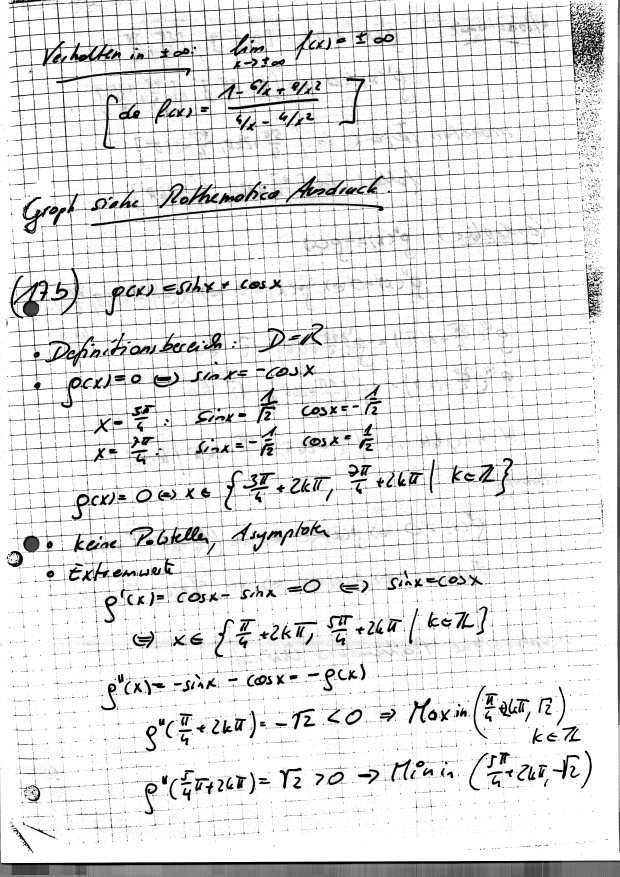 Verhalten in ±∞: lim x→±∞ f(x) = ±∞
[da f(x) = (1 - 6/x + 9/x²) / (4/x - 4/x²)]
Graph siehe Mathematica Ausdruck.
(17b) g(x) = sinx + cosx
• Definitionsbereich: D = ℝ
• g(x) = 0 ⇔ sinx = -cosx
x = 3π/4 : sinx = 1/√2 cosx = -1/√2
x = 7π/4 : sinx = -1/√2 cosx = 1/√2
g(x) = 0 ⇔ x ∈ {3π/4 + 2kπ, 7π/4 + 2kπ | k ∈ ℤ}
• keine Polstellen, Asymptoten
• Extremwerte
g'(x) = cosx - sinx = 0 ⇔ sinx = cosx
⇔ x ∈ {π/4 + 2kπ, 5π/4 + 2kπ | k ∈ ℤ}
g''(x) = -sinx - cosx = -g(x)
g''(π/4 + 2kπ) = -√2 < 0 ⇒ Max in (π/4 + 2kπ, √2)
k ∈ ℤ
g''(5/4 π + 2kπ) = √2 > 0 → Min in (5π/4 + 2kπ, -√2)